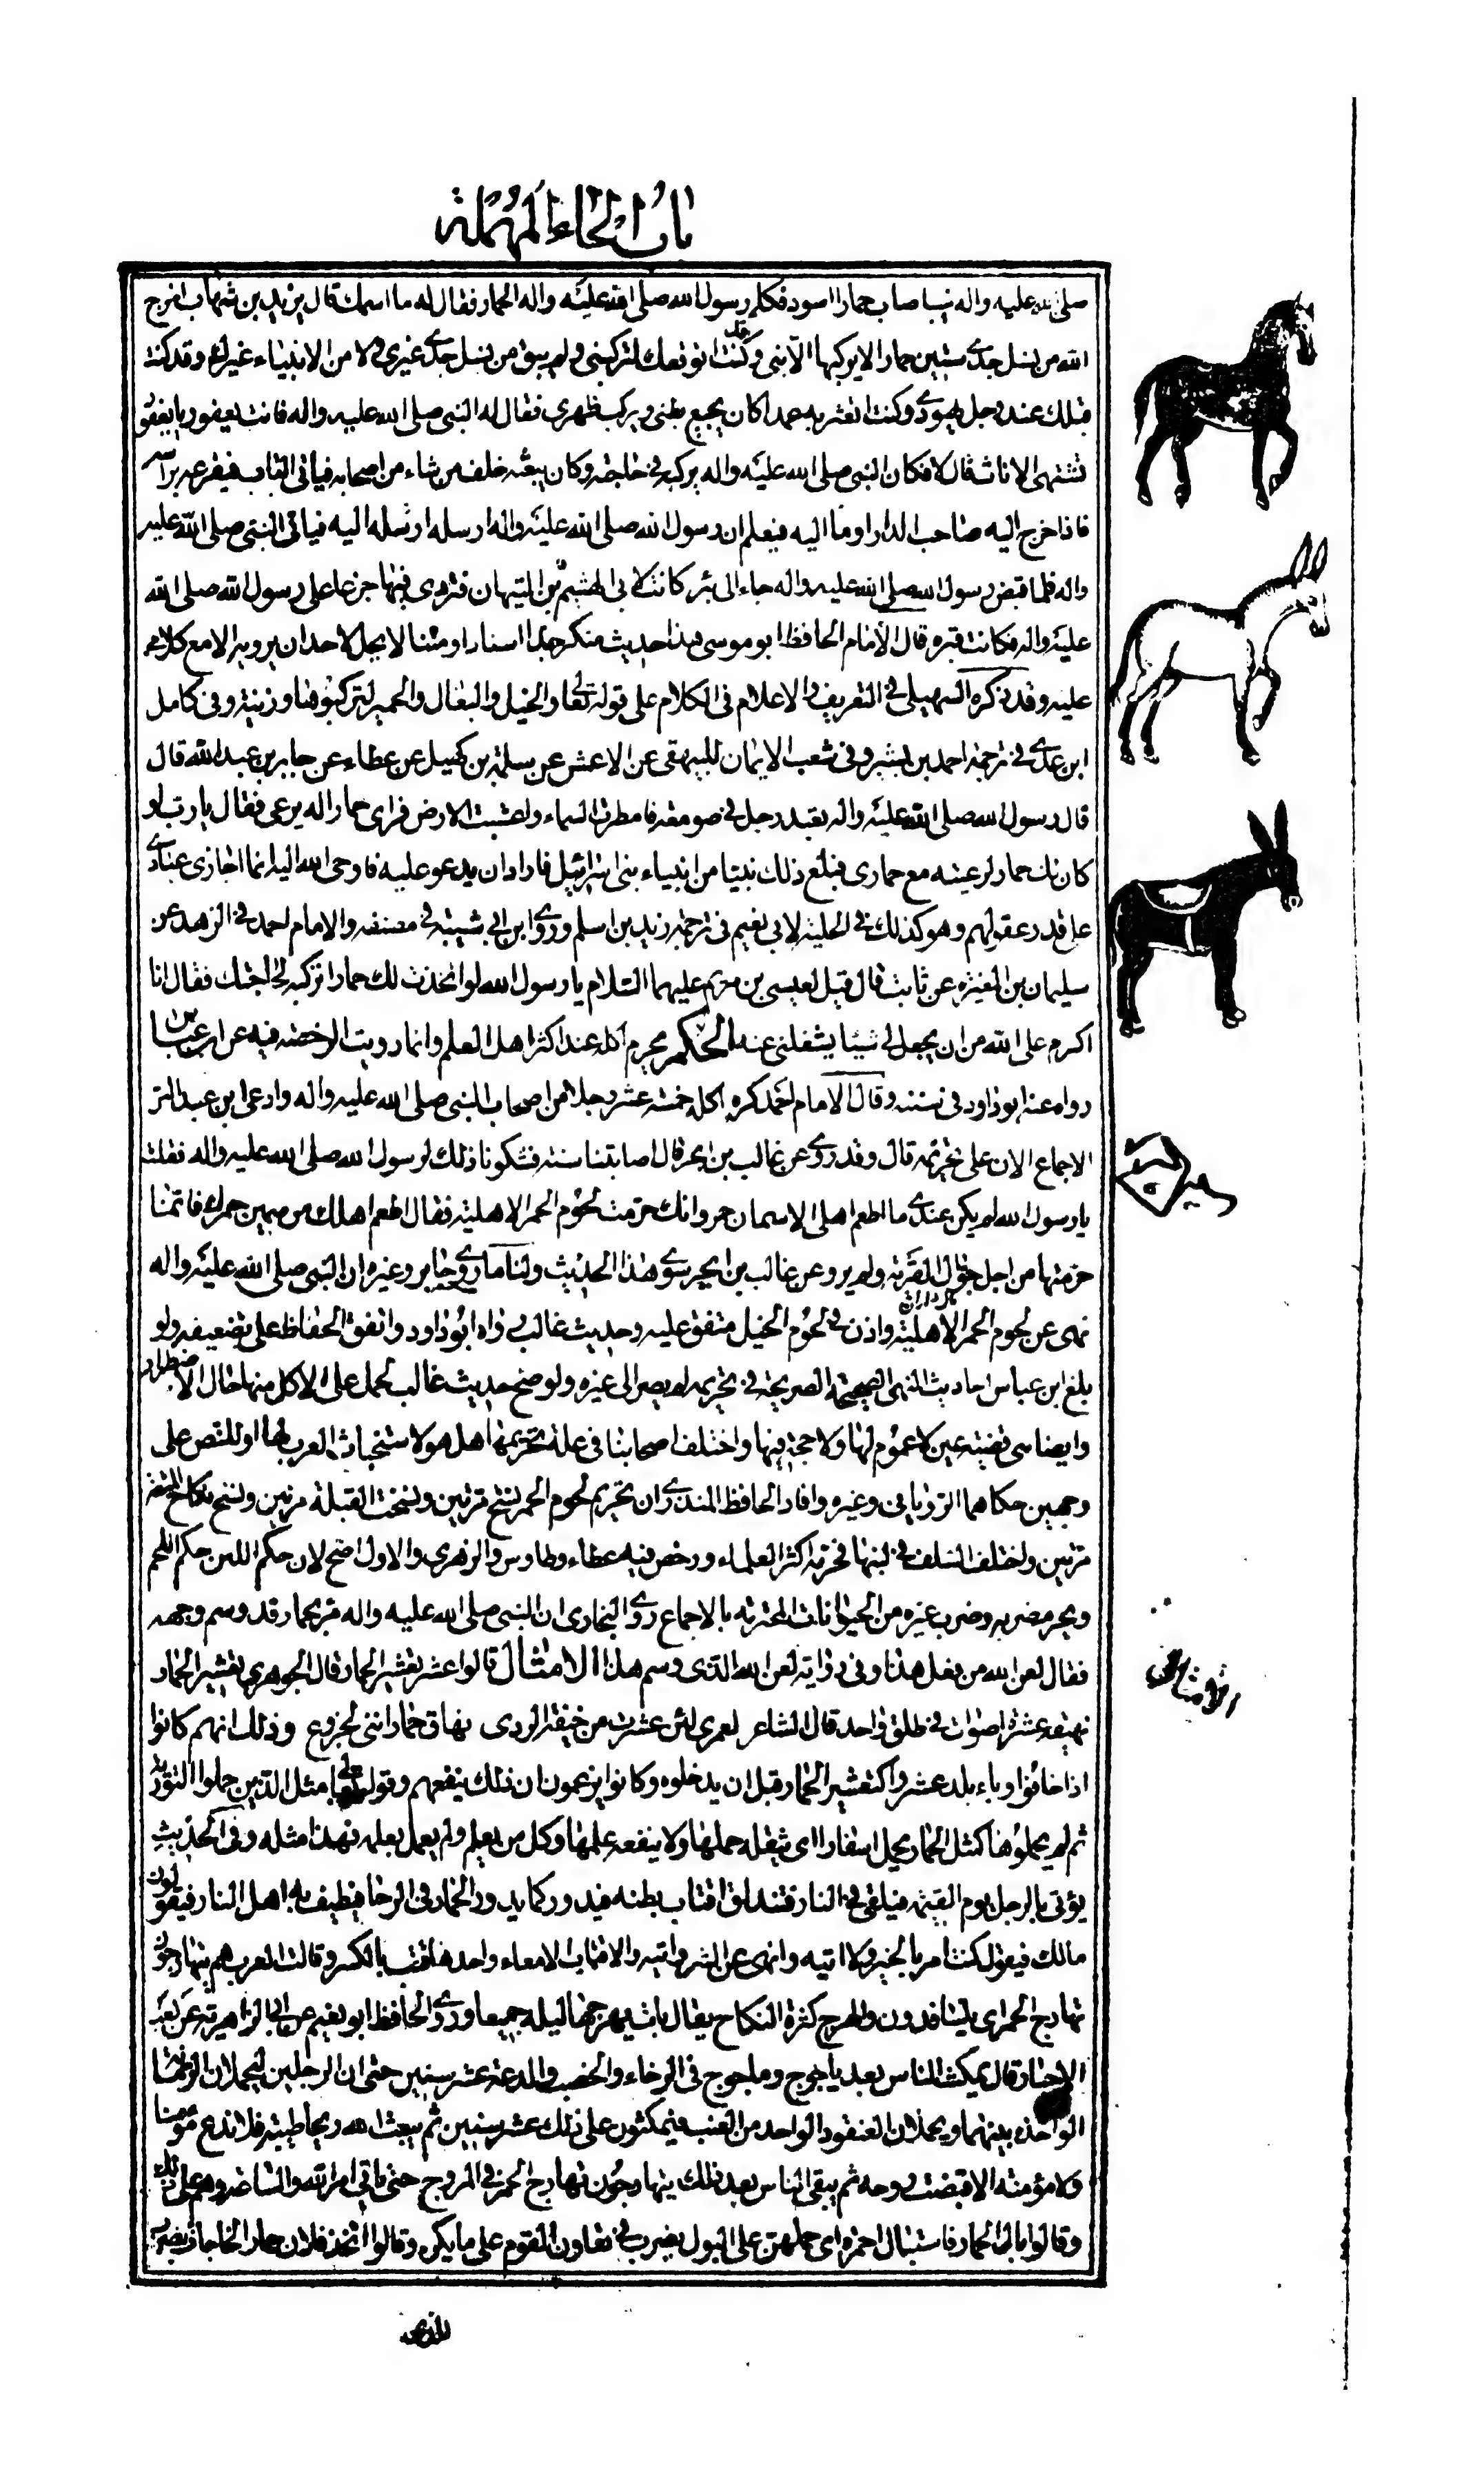 باب الحاء المهملة
صلى الله عليه واله نيبا صاب حمارا اسود فكلم رسول الله صلى الله عليه واله الحمار فقال له ما اسمك قال يزيد بن شهاب اخرج
الله من نسل جدي ستين حمارا لا يركبها الا نبي وقد كنت اتوقعك لتركبني ولم يبق من نسل جدي غيري ولا من الانبياء غيرك وقد كنت
قبلك عند رجل يهودي وكنت اتعثر به عمدا كان يجيع بطني ويركب ظهري فقال له النبي صلى الله عليه واله فانت يعفور يا يعفور
تشتهي الاناث قال لا فكان النبي صلى الله عليه واله يركبه في حاجته وكان يبعثه خلف من شاء من اصحابه فياتي الباب فيقرعه براسه
فاذا خرج اليه صاحب الدار اوما اليه فيعلم ان رسول الله صلى الله عليه واله ارسله ارسله اليه فياتي النبي صلى الله عليه
واله فلما قبض رسول الله صلى الله عليه واله جاء الى بئر كانت لابي الهشيم بن التيهان فتردى فيها جزعا على رسول الله صلى الله
عليه واله فكانت قبره قال الامام الحافظ ابو موسى هذا حديث منكر جدا اسنادا ومتنا لا يحل لاحد ان يرويه الا مع كلامي
عليه وقد ذكره السهيلي في التعريف والاعلام في الكلام على قوله تعالى والخيل والبغال والحمير لتركبوها وزينة وفي كامل
ابن عدي في ترجمة احمد بن بشير وفي شعب الايمان للبيهقي عن الاعمش عن سلمة بن كهيل عن عطاء عن جابر بن عبد الله قال
قال رسول الله صلى الله عليه واله تعبد رجل في صومعة فامطرت السماء واعشبت الارض فراى حمارا له يرعى فقال يا رب لو
كان لك حمار لرعيته مع حماري فبلغ ذلك نبيا من انبياء بني اسرائيل فاراد ان يدعو عليه فاوحى الله اليه انما اجازي عبادي
على قدر عقولهم وهو كذلك في الحلية لابي نعيم في ترجمة زيد بن اسلم وروى ابن ابي شيبة في مصنفه والامام احمد في الزهد عن
سليمان بن المغيرة عن ثابت قال قيل لعيسى بن مريم عليهما السلام يا رسول الله لو اتخذت لك حمارا تركبه لحاجتك فقال انا
اكرم على الله من ان يجعل لي شيئا يشغلني عنه الحكم يحرم اكله عند اكثر اهل العلم وانما رويت الرخصة فيه عن ابن عباس
رواه عنه ابو داود في سننه وقال الامام احمد كره اكله خمسة عشر رجلا من اصحاب النبي صلى الله عليه واله وادعى ابن عبد البر
الاجماع الان على تحريمه قال وقد روى عن غالب بن ابحر قال اصابتنا سنة فشكونا ذلك لرسول الله صلى الله عليه واله فقلت
يا رسول الله لم يكن عندي ما اطعم اهلي الا سمان حمر وانك حرمت لحوم الحمر الاهلية فقال اطعم اهلك من سمين حمرك فانما
حرمتها من اجل جوال القرية ولم يرو عن غالب بن ابحر سوى هذا الحديث ولنا ما روى جابر وغيره ان النبي صلى الله عليه واله
نهى عن لحوم الحمر الاهلية واذن في لحوم الخيل متفق عليه وحديث غالب رواه ابو داود واتفق الحفاظ على تضعيفه ولو
بلغ ابن عباس احاديث النهى الصحيحة الصريحة في تحريمه لم يصر الى غيره ولو صح حديث غالب لحمل على الاكل منها حال الاضطرار
وايضا هي قضية عين لا عموم لها ولا حجة فيها واختلف اصحابنا في علة تحريمها هل هو لاستخباث العرب لها او للنص على
وجهين حكاهما الروياني وغيره وافاد الحافظ المنذري ان تحريم لحوم الحمر نسخ مرتين ونسخت القبلة مرتين ونسخ نكاح المتعة
مرتين واختلف السلف في لبنها فحرمه اكثر العلماء ورخص فيه عطاء وطاوس والزهري والاول اصح لان حكم اللبن حكم اللحم
ويحرم ضربه وضرب غيره من الحيوانات المحترمة بالاجماع روى البخاري ان النبي صلى الله عليه واله مر بحمار قد وسم وجهه
فقال لعن الله من فعل هذا وفي رواية لعن الله الذي وسم هذا الامثال قالوا عشر تعشير الحمار قال الجوهري تعشير الحمار
نهيقه عشرة اصوات في طلق واحد قال الشاعر لعمري لئن عشرت من خيفة الردى نهاق حمار انني لجزوع وذلك انهم كانوا
اذا خافوا وباء بلد عشروا كتعشير الحمار قبل ان يدخلوه وكانوا يزعمون ان ذلك ينفعهم وقوله تعالى مثل الذين حملوا التورية
ثم لم يحملوها كمثل الحمار يحمل اسفارا اى يثقله حملها ولا ينفعه علمها وكل من يعلم ولم يعمل بعلمه فهذا مثله وفي الحديث
يؤتى بالرجل يوم القيمة فيلقى في النار فتندلق اقتاب بطنه فيدور كما يدور الحمار في الرحا فيطيف به اهل النار فيقولون
مالك فيقول كنت امر بالخير ولا اتيه وانهى عن الشر واتيه والاقتاب الامعاء واحدها قتب بالكسر وقالت العرب هم يتهارجون
تهارج الحمر اى يتسافدون والهرج كثرة النكاح يقال بات يهرجها ليله جميعا وروى الحافظ ابو نعيم عن ابي الزاهرية عن كعب
الاحبار قال يمكث الناس بعد ياجوج وماجوج في الرخاء والخصب والدعة عشر سنين حتى ان الرجلين ليحملان الرمانة
الواحدة بينهما ويحملان العنقود الواحد من العنب فيمكثون على ذلك عشر سنين ثم يبعث الله ريحا طيبة فلا تدع مؤمنا
ولا مؤمنة الا قبضت روحه ثم يبقى الناس بعد ذلك يتهارجون تهارج الحمر في المروج حتى ياتي امر الله والساعة وهم على ذلك
وقالوا بال الحمار فاستبال احمرة اى حملهن على البول يضرب في تعاون القوم على ما يكره وقالوا اتخذ فلان حمار الحاجات يضرب
الامثال
للذي